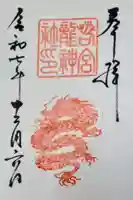 奉拝
龍神
社印
令和七年十二月六日